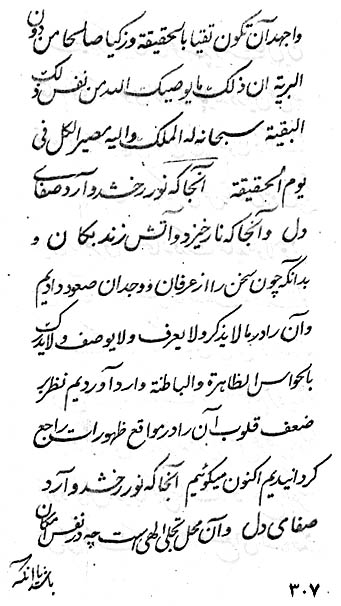 واجهد آن تکون تقیا بالحقیقة وزکیا صالحا من دون
البریّة ان ذلک مایوصیک الله من نفس ذلک
البقیة سبحانه له الملک والیه مصیر الکل فی
یوم الحقیقة آنجا که نور رخشد و آرد صفای
دل و آنجا که نار خیزد و آتش زند بکان و
بدانکه چون سخن را از عرفان و وجدان صعود دادیم
و آن را در ما لا یذکر ولا یعرف ولا یوصف ولا یدرک
بالحواس الظاهرة والباطنة وارد آوردیم نظر بر
ضعف قلوب آن را در مواقع ظهورات راجع
گردانیدیم اکنون میگوئیم آنجا که نور رخشد و آرد
صفای دل و آن محل تجلی الهی است چه در نفس امکان
باشد یا آنکه
۳۰۷